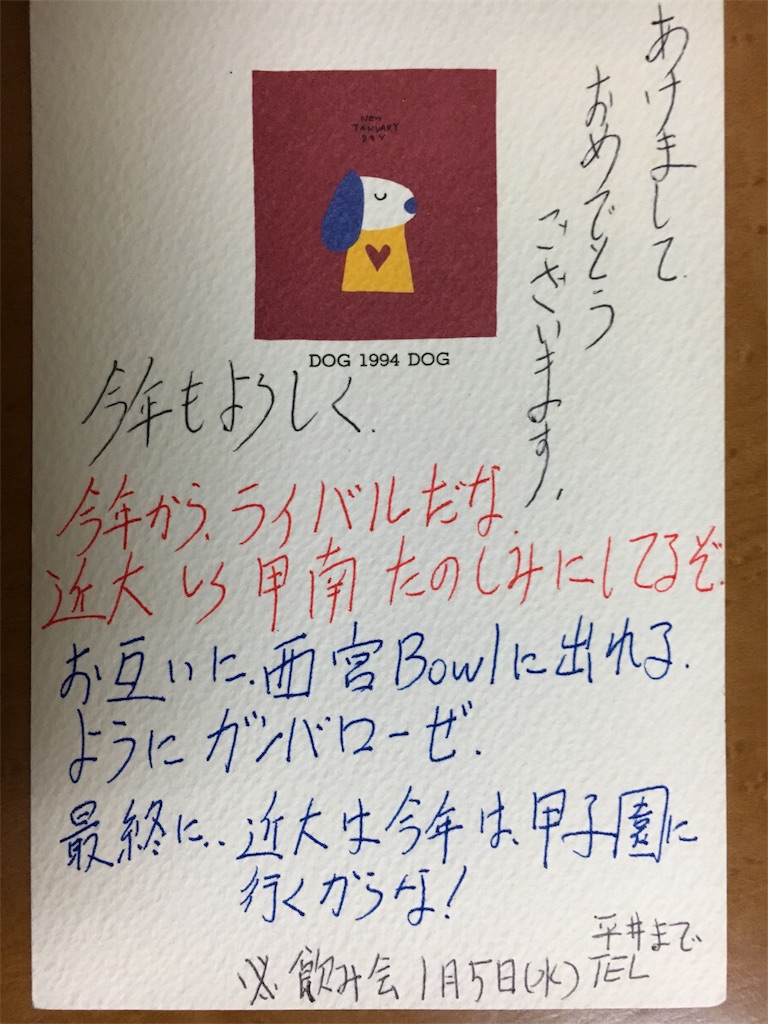 あけまして
おめでとう
ございます。
NEW
JANUARY
DAY
DOG 1994 DOG
今年もよろしく.
今年から、ライバルだな.
近大 VS 甲南 たのしみにしてるぞ.
お互いに、西宮Bowlに出れる.
ようにガンバローゼ.
最終に.. 近大は今年は、甲子園に
行くからな!
※ 飲み会 1月5日(水) 平井まで
TEL